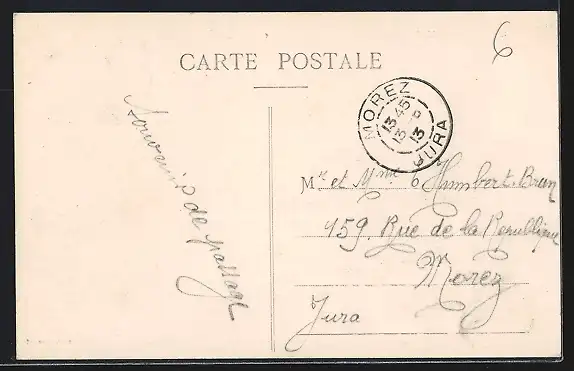 6
CARTE POSTALE
MOREZ
13 45
13
13
JURA
Souvenir de passage
Mr et Mme Humbert-Brun
159 Rue de la République
Morez
Jura